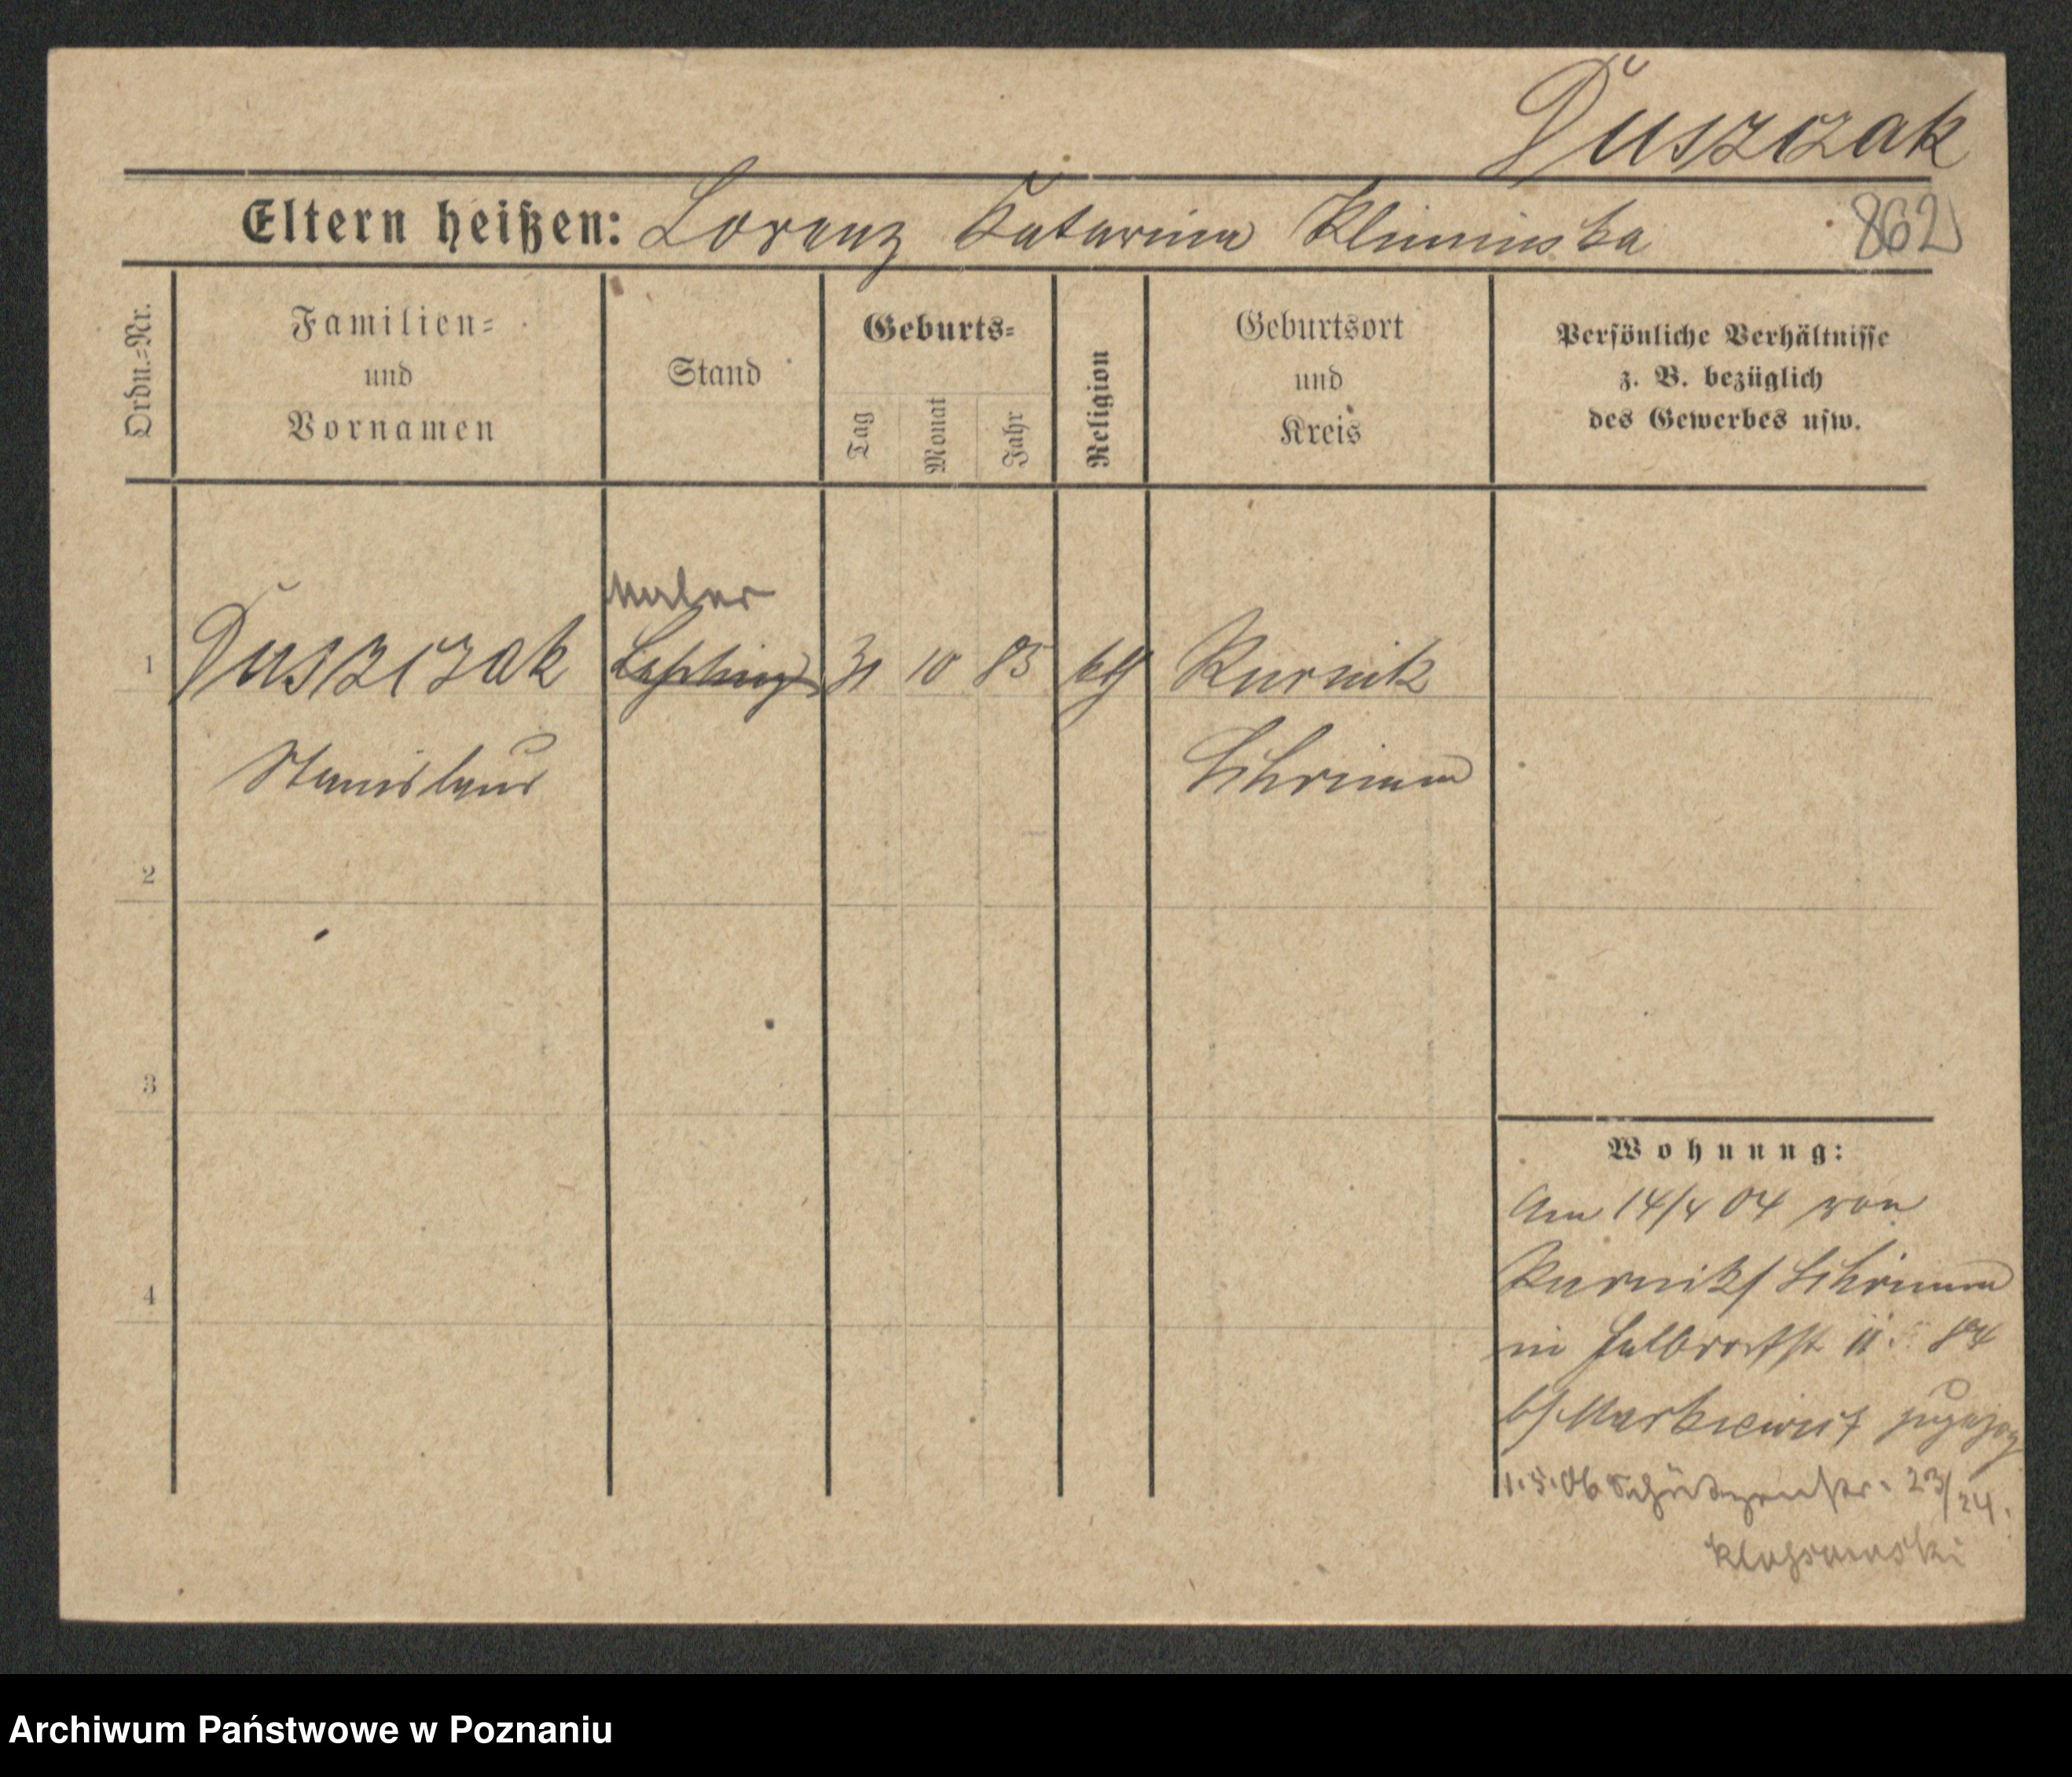 Duszczak
Eltern heißen: Lorenz Katarina Kliminska 862
Ordn.=Nr.
Familien=
und
Vornamen
Stand
Geburts=
Tag
Monat
Jahr
Religion
Geburtsort
und
Kreis
Persönliche Verhältnisse
z. B. bezüglich
des Gewerbes usw.
Maler
1 Duszczak Lehrling 31 10 85 kth Kurnik
Stanislaus Schrimm
2
3
4
Wohnung:
Am 14/4 04 von
Kurnik/ Schrimm
in Halbdorfstr
b/ Markiewicz zugezog
1.5.06 Schützenstr. 23/24.
Archiwum Państwowe w Poznaniu